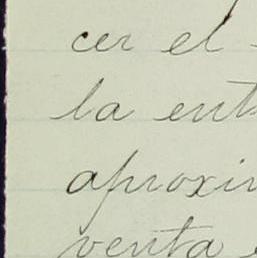 cer el
la ent
aproxin
venta